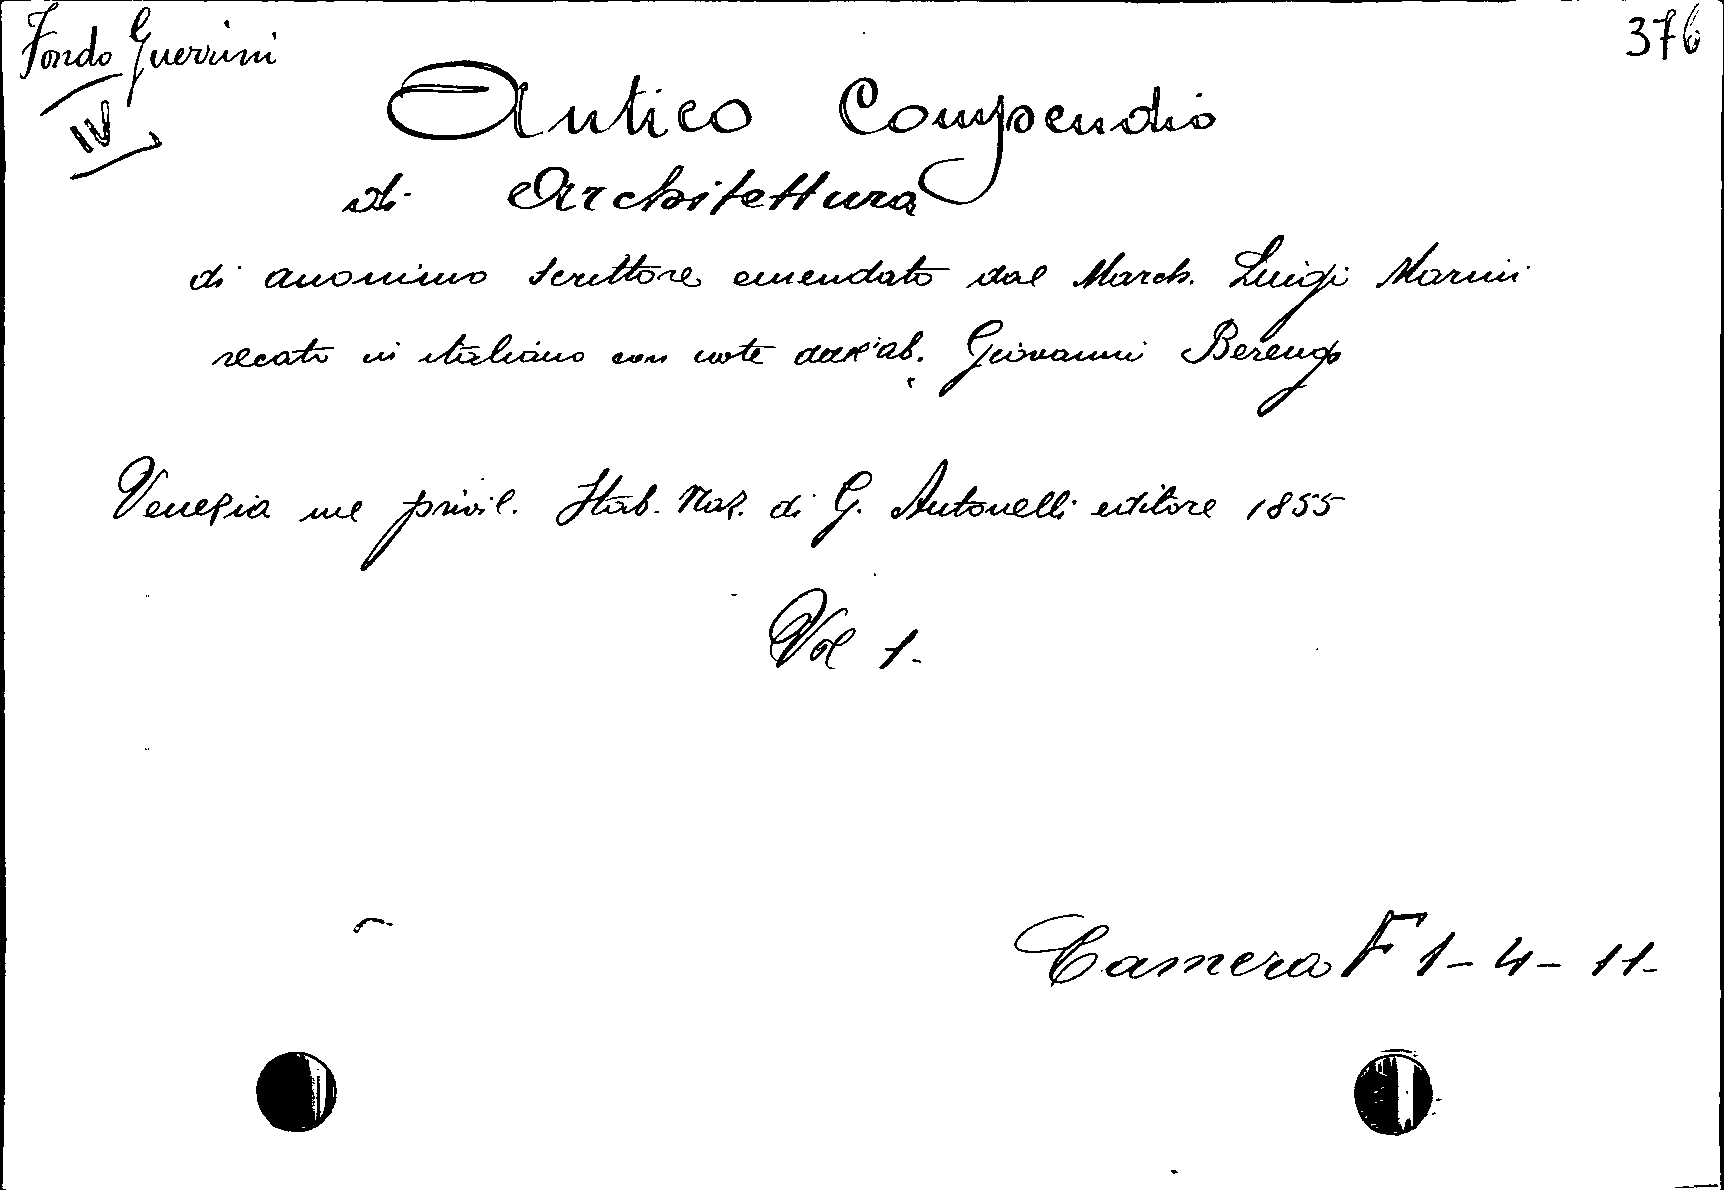 Fondo Guerrini
376
IV
Antico Compendio
di Architettura
di anonimo scrittore emendato dal March. Luigi Marini
recato in italiano con note dall'ab. Giovanni Berengo
Venezia nel privil. Stab. Naz. di G. Antonelli editore 1855
Vol 1.
Camera F 1-4-11-